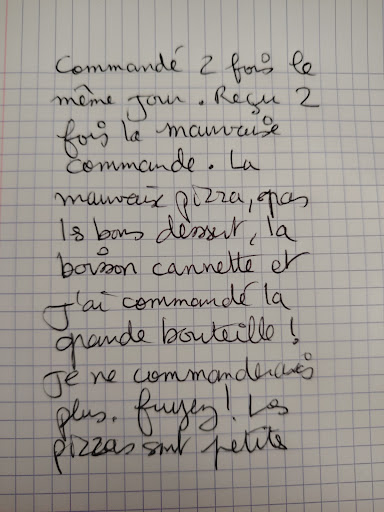 Commandé 2 fois le
même jour. Reçu 2
fois la mauvaise
commande. La
mauvaix pizza, pas
ls bons dessert, la
boisson cannette et
j'ai commandé la
grande bouteille !
Je ne commanderais
plus. fuyez ! Les
pizzas sont petite